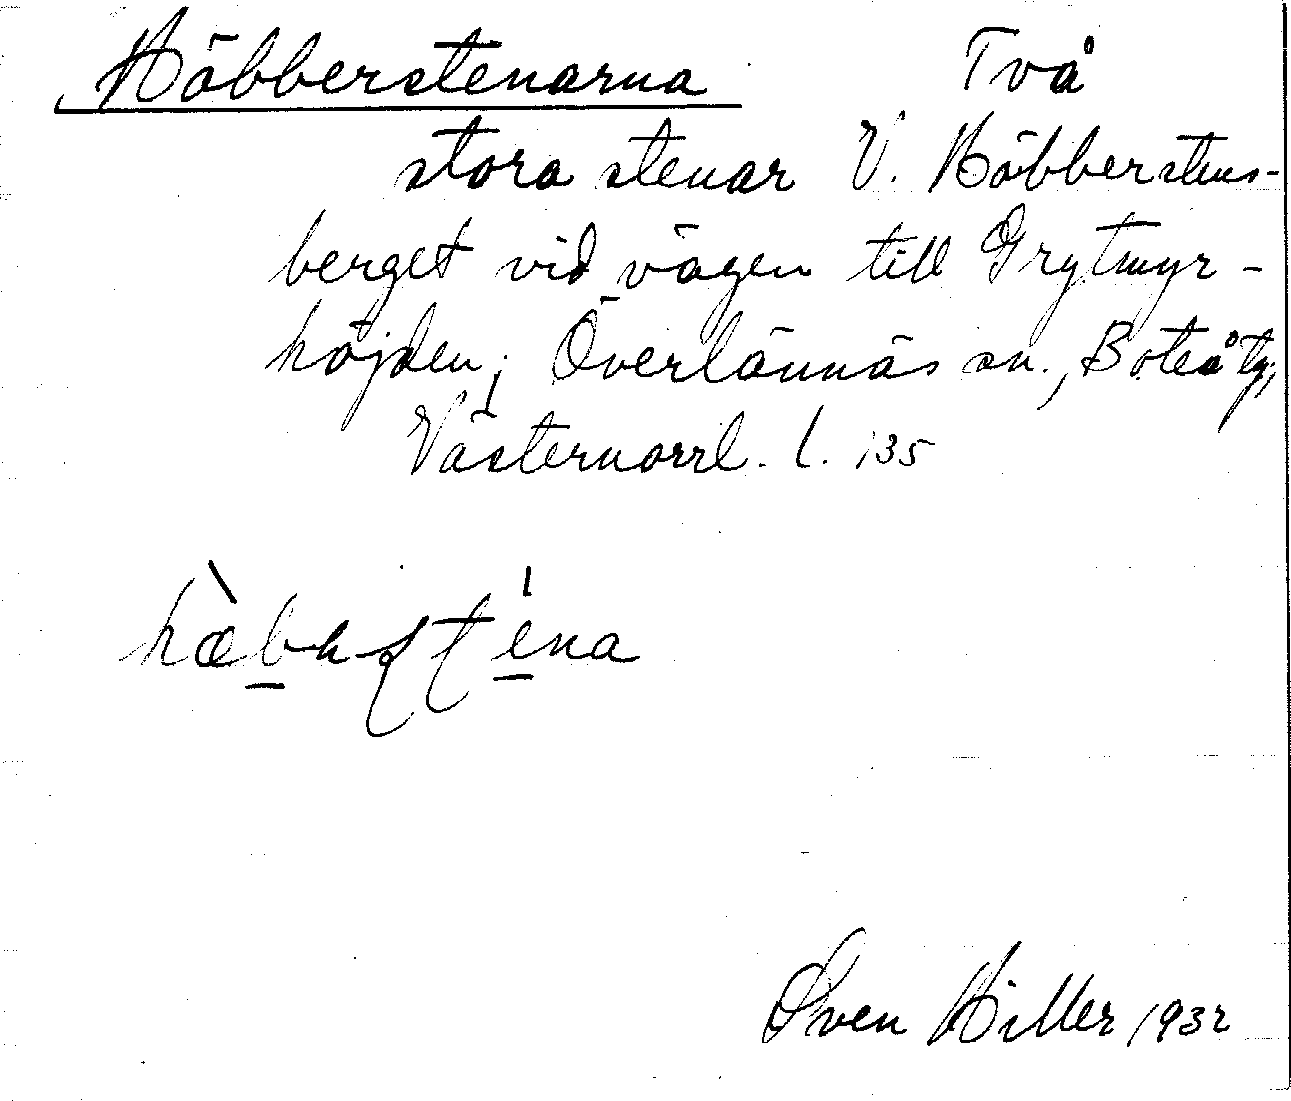 Häbberstenarna Två
stora stenar V. Häbberstens-
berget vid vägen till Grytmyr-
höjden; Överlännäs sn., Boteå tg,
Västernorrl. l. 135
Sven Hiller 1932